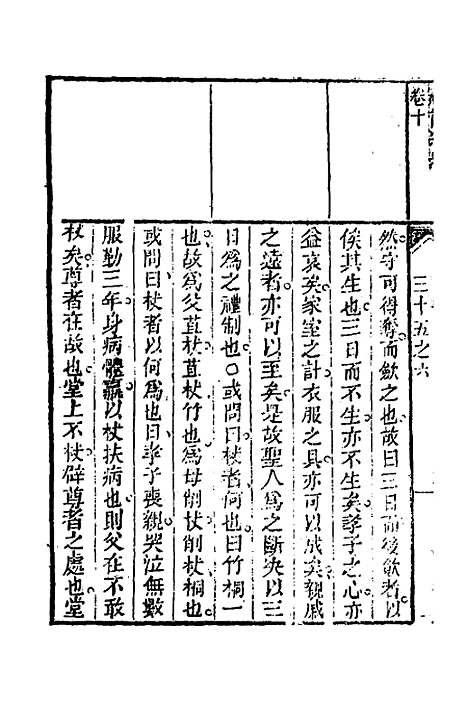 卷十
三十五之六
然守可得奪而歛之也故曰三日而後歛者以
俟其生也三日而不生亦不生矣孝子之心亦
益衰矣家室之計衣服之具亦可以成矣親戚
之遠者亦可以至矣是故聖人為之斷決以三
日為之禮制也○或問曰杖者何也曰竹桐一
也故為父苴杖苴杖竹也為母削杖削杖桐也
或問曰杖者以何為也曰孝子喪親哭泣無數
服勤三年身病體羸以杖扶病也則父在不敢
杖矣尊者在故也堂上不杖辟尊者之處也堂